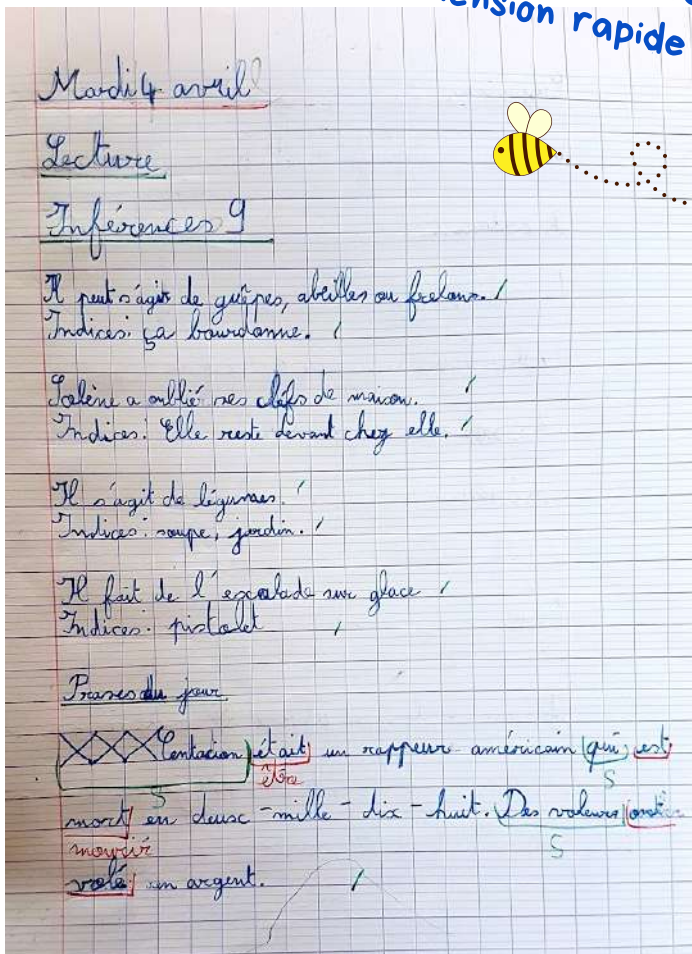 rapide
Mardi 4 avril
Lecture
Inférences 9
Il peut s'agir de guêpes, abeilles ou frelons.
Indices: ça bourdonne.
Solène a oublié ses clefs de maison.
Indices: Elle reste devant chez elle.
Il s'agit de légumes.
Indices: soupe, jardin.
Il fait de l'escalade sur glace
Indices: pistolet
Prases du jour
XXXTentacion était un rappeur américain qui est
être S
S
mort en deusc-mille-dix-huit. Des voleurs ont
mourir S
volé un argent.